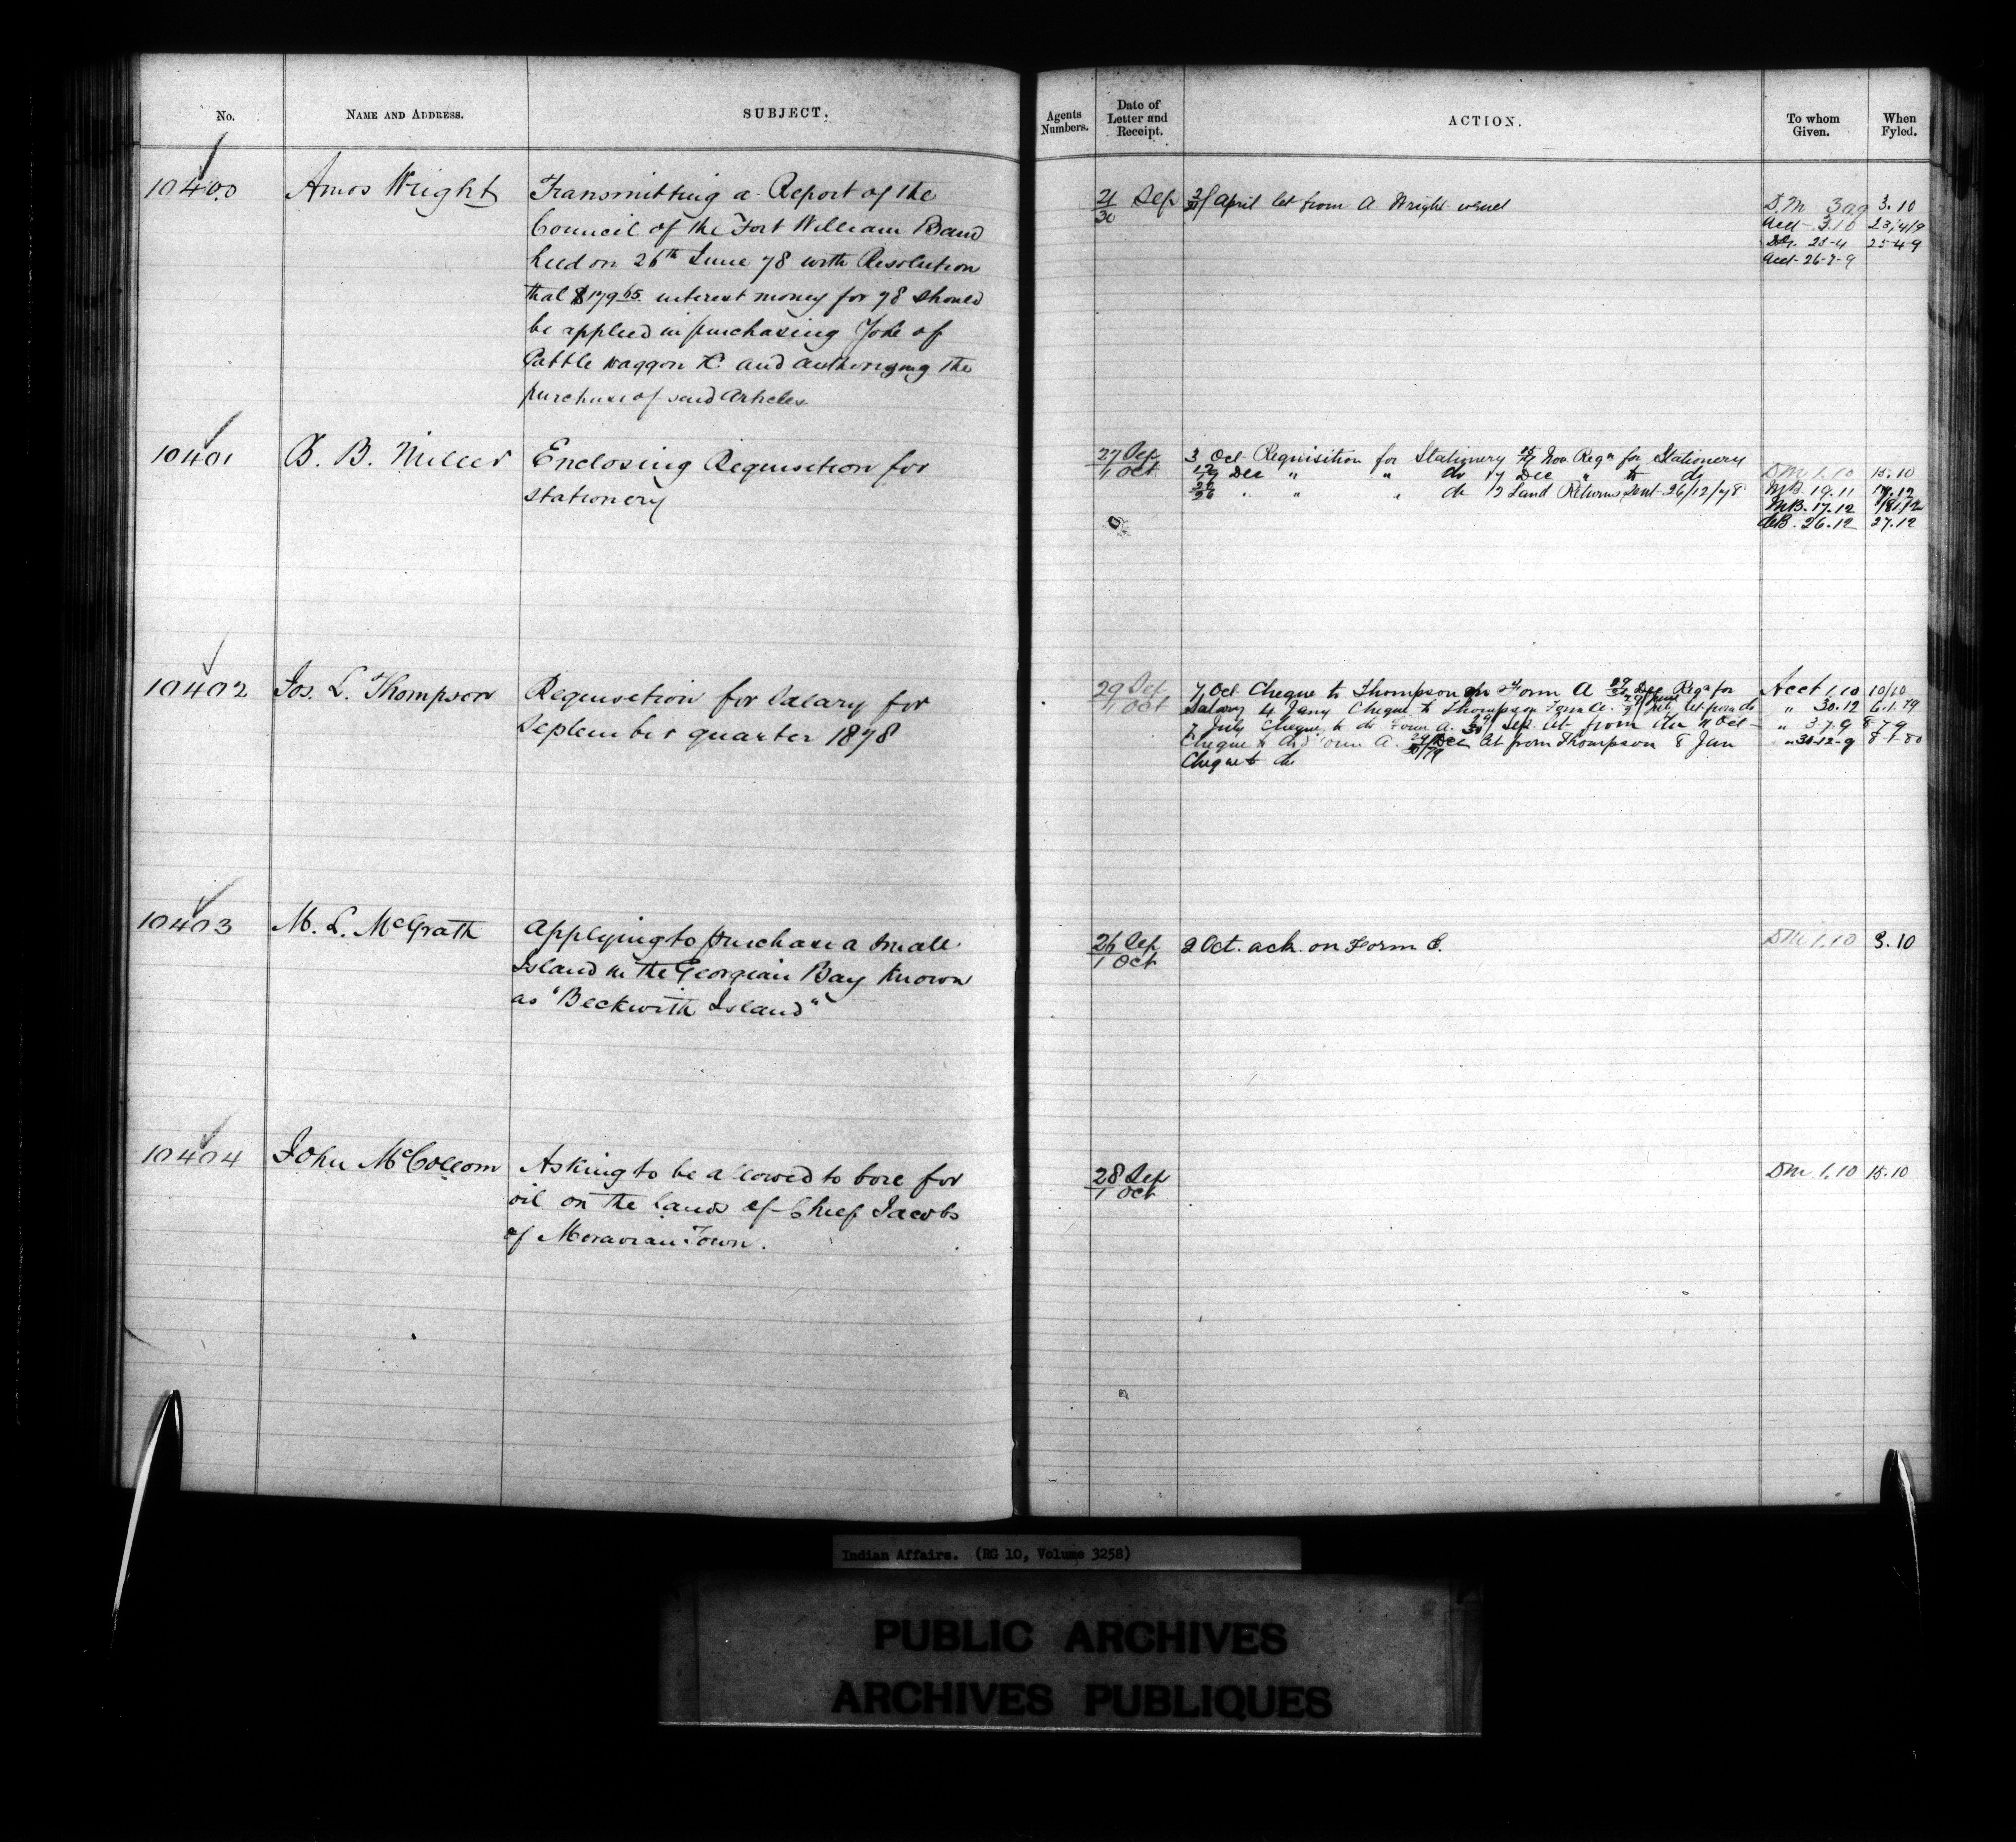 No.
NAME AND ADDRESS.
SUBJECT.
10400
Amos Wright
Transmitting a Report of the
Council of the Fort William Band
held on 26th June 78 with Resolution
that $179 65 interest money for 78 should
be applied in purchasing Yoke of
Cattle waggon &c and authorizing the
purchase of said Articles
10401
B. Miller
Enclosing Requisition for
stationery
10402
Jos. L. Thompson
Requisition for Salary for
September quarter 1878
10403
M. L. McGrath
Applying to purchase a small
Island in the Georgian Bay known
as "Beckwith Island"
10404
John McCollom
Asking to be allowed to bore for
oil on the lands of Chief Jacobs
of Moravian Town.
Agents
Numbers.
Date of
Letter and
Receipt.
ACTION.
To whom
Given.
When
Fyled.
21 Sep
30
April let from A. Wright
DM 3.10
Acct 3.10 23/4/9
23-4 25-4-9
Acct-26-
27 Sep
1 Oct
3 Oct Requisition for Stationery Nov Reqn for Stationery
Dec " " do 17 Dec " do
" " " do 12 Land Returns sent 26/12/78
DM 1.10 15.10
MB. 19.11
MB. 17.12
26.12 27.12
29 Sep
1 Oct
7 Oct Cheque to Thompson on Form A Dec Reqn for
Salary 4 Jany Cheque to Thompson Form A. let from do
7 July Cheque to do Form A. Sep. let from do Oct
Cheque to do Form A. let from Thompson 8 Jan
Cheque to do
Acct 1.10 10/10
" 30.12 6.1.79
" 3-7-9 8-7-9
" 30-12-9 8-1-80
26 Sep
1 Oct
2 Oct. ack. on Form C.
DM 1.10 3.10
28 Sep
1 Oct
DM 1.10 15.10
Indian Affairs. (RG 10, Volume 3258)
PUBLIC ARCHIVES
ARCHIVES PUBLIQUES